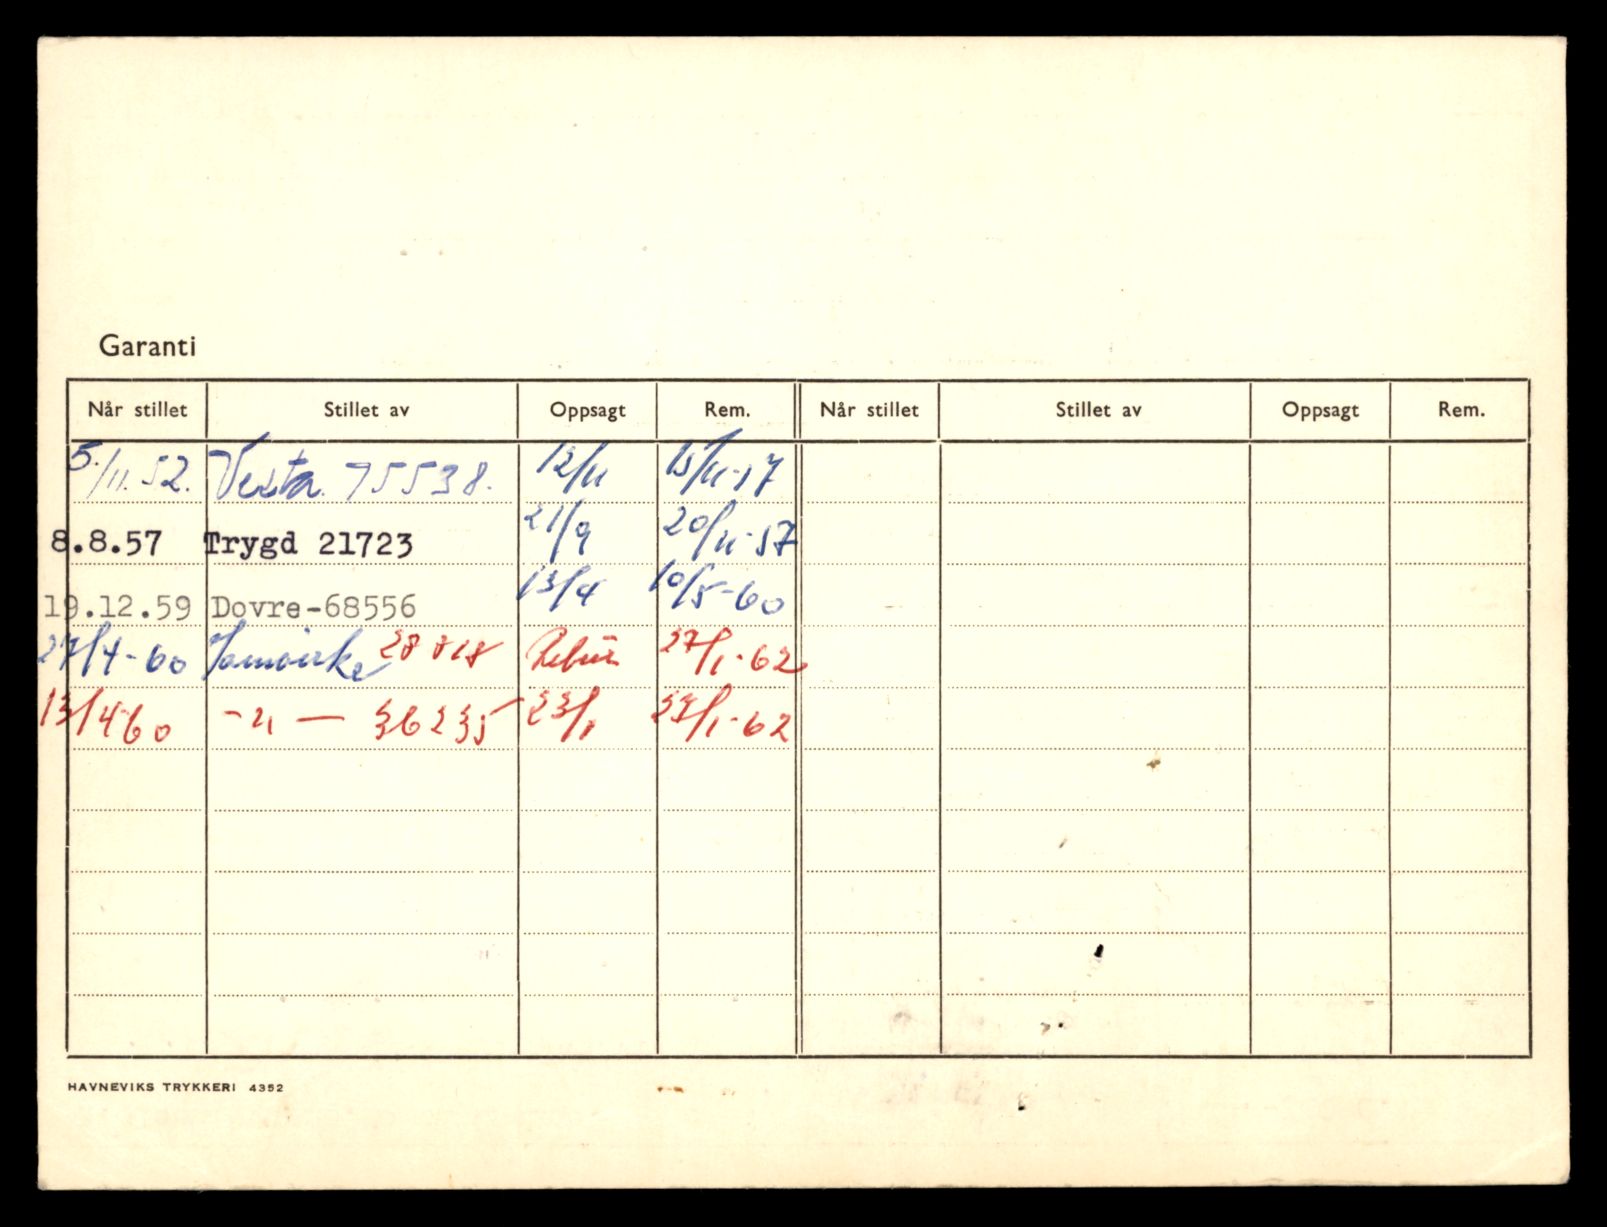 Garanti
Når stillet Stillet av Oppsagt Rem. Når stillet Stillet av Oppsagt Rem.
5./11.52. Vesta. 75538. 12/11 15/11-57
8.8.57 Trygd 21723 21/9 20/11-57
19.12.59 Dovre-68556 13/4 10/5-60
27/4-60 Samvirke 28818 27/1-62
13/4 60 -"- 36235 23/1 23/1-62
HAVNEVIKS TRYKKERI 4352